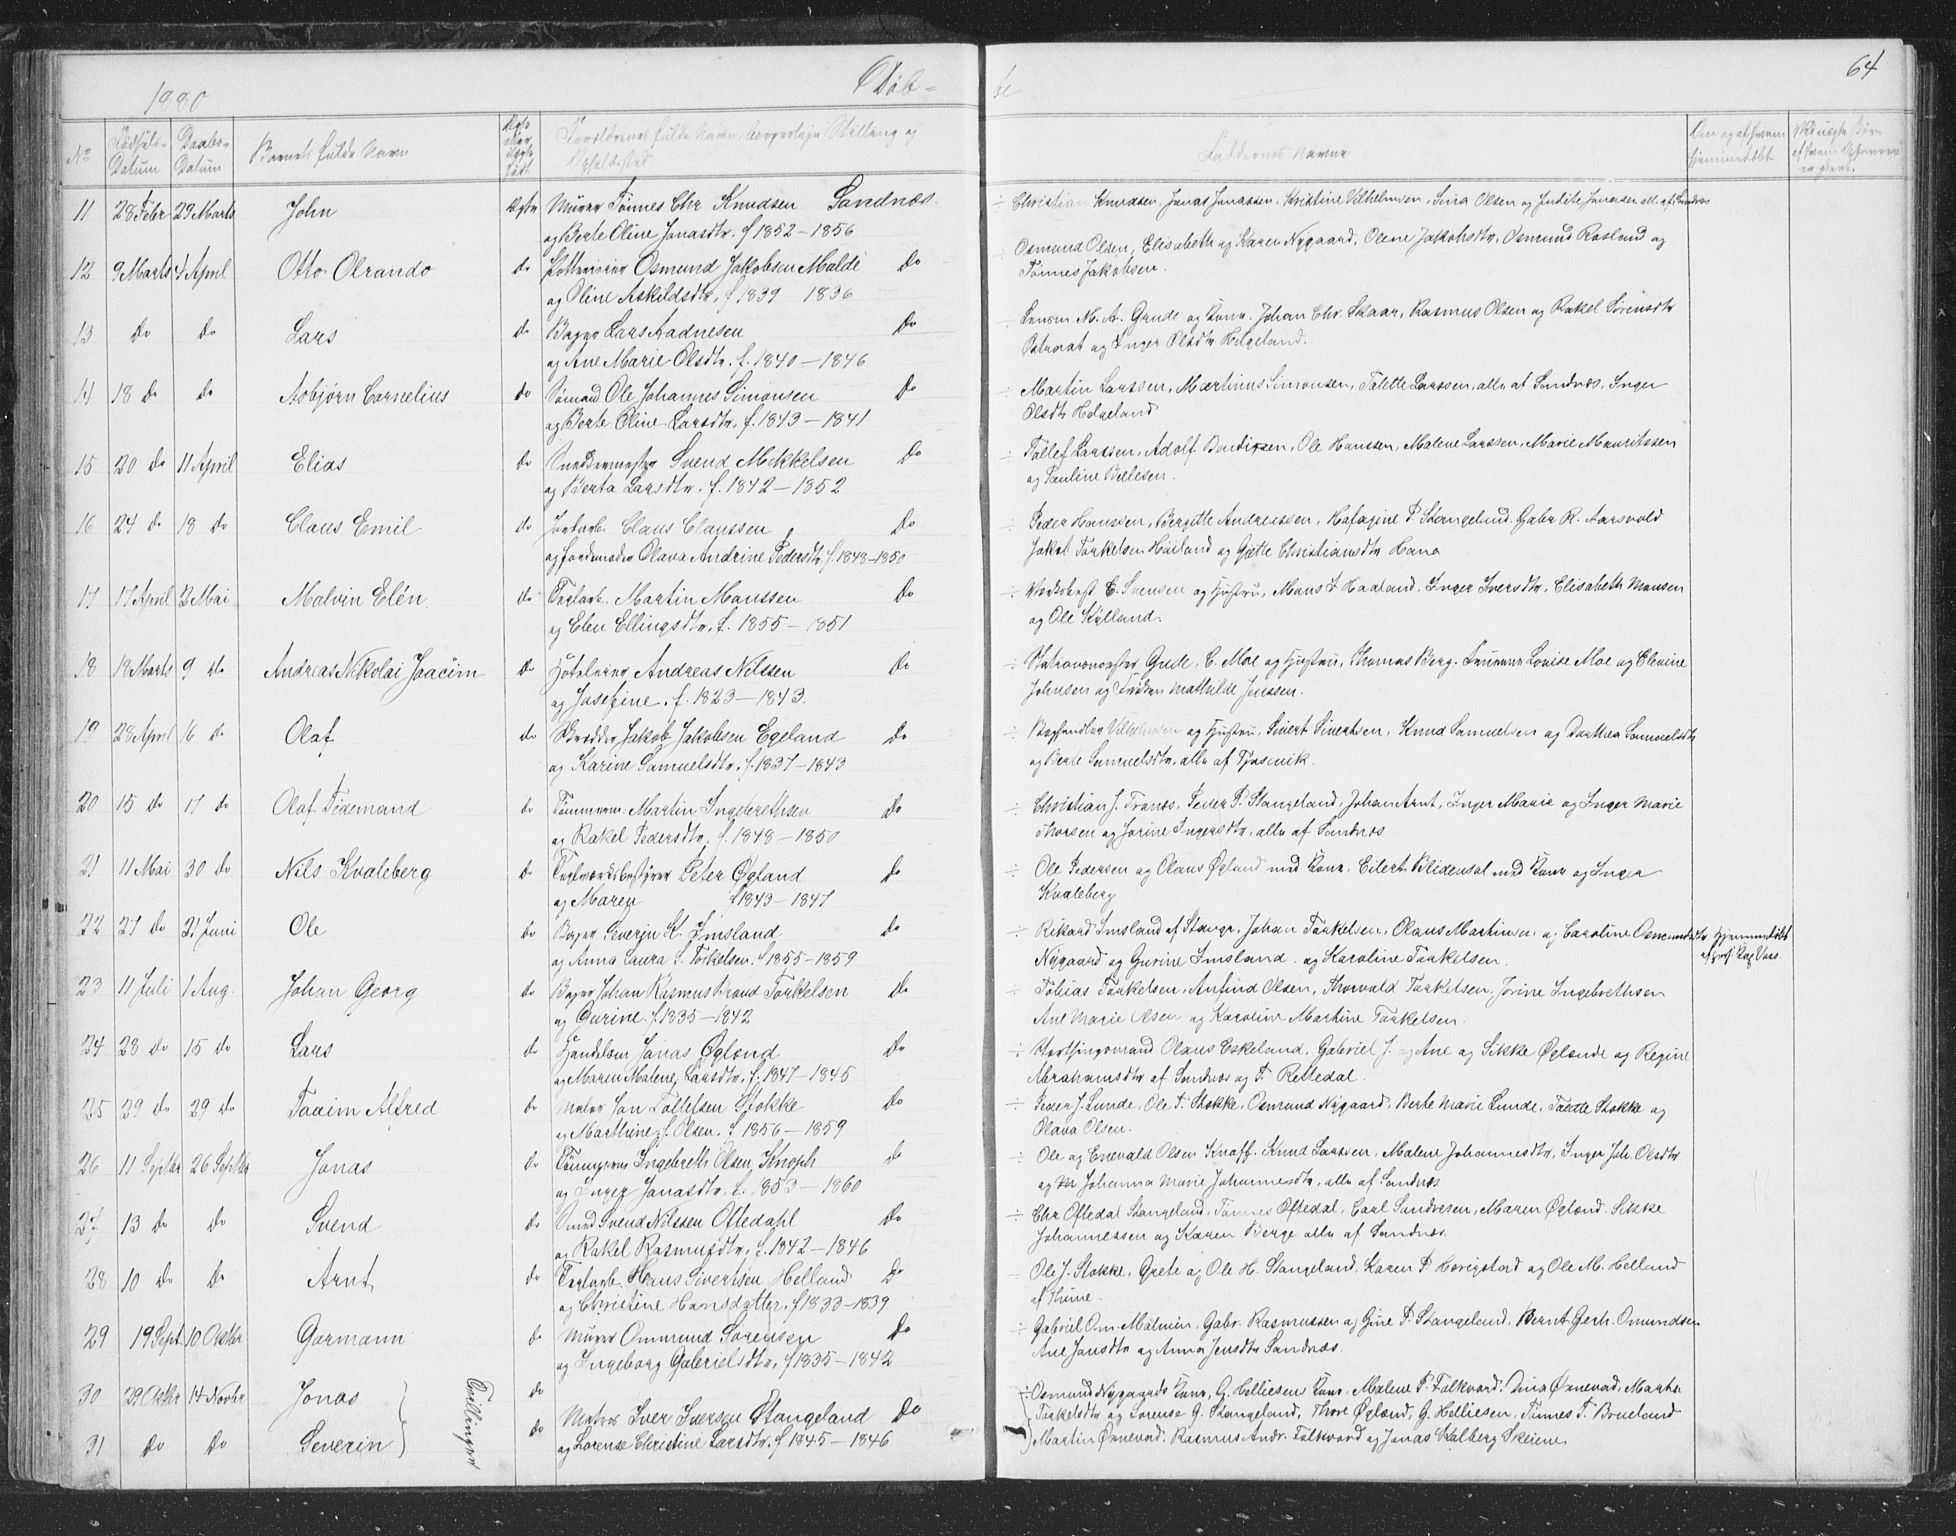 64
1880 Døb- te
No Fødsels-Datum Daabs-Datum Barnets fulde Navn Forældrenes fulde Navn, borgerlige Stilling og Opholdssted Faddernes Navne
11 28 Febr 29 Marts John Ægte Murer Tønnes Chr Knudsen Sandnæs ÷ Christian Knudsen, Jonas Jonassen, Kristine Vilhelmsen, Sina Olsen og Judite Jonassen all. af Sandnæs
og Berte Oline Jonasdtr. f 1852 – 1856
12 9 Marts 4 April Otto Olrando do Osmund Jakobsen Malde Do ÷ Osmund Olsen, Elisabeth og Karen Nygaard, Olene Jakobsdtr, Osmund Rosland og
og Oline Askildsdtr. f 1839 1836 Tønnes Jakobsen.
13 do do Lars do Bager Lars Aadnesen Do M. A. Grude og Kone, Johan Chr. Skaar, Rasmus Olsen og Rakel Sørensdtr
og Ane Marie Olsdtr. f. 1840 – 1846 og Inger Olsdtr Helgeland.
14 18 do do Asbjørn Cornelius do Sømand Ole Johannes Simonsen Do ÷ Martin Larssen, Martinus Simonsen, Talette Larssen, alle af Sandnæs, Inger
og Berte Oline Larsdtr. f. 1843 – 1841 Olsdtr Helgeland
15 20 do 11 April Elias do Svend Mikkelsen Do ÷ Tollef Larssen, Adolf Bendixsen, Ole Hanssen, Malene Larssen, Marie Mauritssen
og Berta Larsdtr. f. 1842 – 1852 og Pauline
16 24 do 18 do Claus Emil do Claus Claussen Do ÷ Peder Hanssen, Bergitte Andreassen, P Stangeland, Gabr R. Aarsvold
og Olava Andrine Pedersdtr f. 1848–1850 Jakob Torkelsen Høiland og Gjette Christiansdtr Hana
17 17 April 2 Mai Malvin Elen do Teglarb. Martin Manssen Do ÷ E. Svensen og Hustru, Mons T Haaland, Inger Iversdtr, Elisabeth Monsen
og Elen Ellingsdtr. f. 1855 – 1851 og Ole Kylland.
18 18 Marts 9 do Andreas Nikolai Joacim do Andreas Nilssen Do ÷ Stationsmester Grude, C. Moe og Hustru, Thomas Berg, Louise Moe og Elevine
og Josefine. f. 1823 – 1843. Johnsen og Frøken Mathilde Jenssen.
19 28 April 16 do Olaf do Skrædder Jakob Jakobsen Egeland Do ÷ Vilhelmsen og Hustru, Sivert Sivertsen, Knud Samuelsen og Dorthea Samuelsdtr
og Karine Samuelsdtr. f. 1837 – 1843 og Berte Samuelsdtr, alle af
20 15 do 17 do Olaf Tidemand do Tømmerm. Martin Ingebrethsen Do ÷ Christian J. Tranes, Peder P. Stangeland, Johan Arnt, Inger Marie og Inger Marie
og Rakel Pedersdtr. f. 1848 – 1850 Thorsen og Jorine Ingersdtr, alle af Sandnæs
21 11 Mai 30 do Nils Kvaleberg do Teglværksbestyrer Peter Øgland Do ÷ Ole Pedersen og Olaus Øgland med Kone, Eilert Blidensol med Kone og Inger
og Maren f 1843 – 1847 Kvaleberg
22 27 do 21 Juni Ole do Bager Severin K. Imsland Do ÷ Rikard Imsland af Stavgr. Johan Torkelsen, Olaus Martinsen, og Caroline Osmundsdtr Hjemmedøbt
og Anna Laura f. Torkelsen. f 1855 – 1859 Nygaard og Gurine Imsland. og Karoline Torkelsen.
23 11 Juli 1 Aug. Johan Georg do Bager Johan Rasmus Brand Torkelsen Do ÷ Tobias Torkelsen, Anfind Olsen, Thorvald Torkelsen, Jorine Ingebrethsen
og Gurine. f. 1835 – 1842 Ane Marie Olsen og Karoline Martine Torkelsen.
24 28 do 15 do Lars do Handelsm Jonas Øglænd Do ÷ Storthingsmand Olaus Eskeland, Gabriel J. og Ane og Sikke Øglænde og Regine
og Maren Malene Larsdtr. f. 1847 – 1845 Abrahamsdtr af Sandnæs og T. Rettedal.
25 29 do 29 do Joacim Alfred do Maler Jon Tollefsen Stokke Do ÷ Peder J. Lunde, Ole T. Stokke, Osmund Nygaard, Berte Marie Lunde, Stokke og
og Marthine f. Olsen. f 1856 – 1859 Olava Olsen.
26 11 Septbr 26 Septbr Jonas do Tømmerm Ingebreth Olsen Knoph do ÷ Ole og Enevald Olsen Knoff, Knud Larssen, Malene Johannesdtr, Inger Joh. Olsdtr
og Inger Jonasdtr. f. 1853 – 1860 og M Johanna Marie Johannesdtr, alle af Sandnæs
27 13 do do Svend do Smed Svend Nilssen Oftedahl Do ÷ Chr Oftedal Stangeland, Tønnes Oftedal, Carl Sandvesen, Maren Øglænd, Sikke
og Rakel Rasmusdtr. f. 1842 – 1846 Johannessen og Karen Berge alle af Sandnæs.
28 10 do do Arnt do Teglarb. Hans Sivertsen Helland Do Ole J. Stokke, Grete og Ole H. Stangeland, Karen P. Hovigstad og Ole M. Helland
og Christine Hansdatter. f 1833 – 1839 af Thime.
29 19 Sept 10 Oktbr Garmann do Murer Ommund Sørensen Do ÷ Gabriel Om. Malmin, Gabr. Rasmussen og Gine P. Stangeland, Bernt Gerh. Omundsen
og Ingeborg Gabrielsdtr. f 1835 – 1842 Ane Jansdtr og Anna Jensdtr Sandnæs.
30 29 Oktbr 14 Novbr Jonas Tvillinger do ÷ Osmund Nygaards Kone, G. Helliesen Kone, Malene P. Folkvord, Dina Ørnevad, Marthe
Matros Iver Iversen Stangeland Do Torkelsdtr og Lorense G. Stangeland, Thore Øglænd, G. Helliesen, Tønnes T. Brueland
31 do do Severin do og Lorense Christine Larsdtr. f 1845 – 1846 Martin Ørnevad, Rasmus Andr. Folkvord og Jonas Kalberg Skeiene